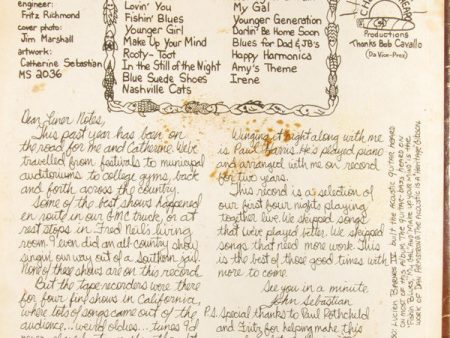 engineer:
Fritz Richmond
cover photo:
Jim Marshall
artwork:
Catherine Sebastian
MS 2036
Lovin' You
Fishin' Blues
Younger Girl
Make Up Your Mind
Rooty-Toot
In the Still of the Night
Blue Suede Shoes
Nashville Cats
My Gal
Younger Generation
Darlin' Be Home Soon
Blues for Dad & JB's
Happy Harmonica
Amy's Theme
Irene
Productions
Thanks Bob Cavallo
(Da Vice-Prez)
Dear Liner Notes,
This past year has been on
the road for me and Catherine. We've
travelled from festivals to municipal
auditoriums to college gyms, back
and forth across the country.
Some of the best shows happened
en route in our GMC truck, or at
rest stops in Fred Neil's living
room. I even did an all-country show
singin our way out of a Southern jail.
None of these shows are on this record.
But the tape recorders were there
for four fine shows in California,
where lots of songs came out of the
audience... weird oldies... tunes I'd
Winging it right along with me
is Paul Harris. He's played piano
and arranged with me on record
for two years.
This record is a selection of
our first four nights playing
together live. We skipped songs
that we've played better. We skipped
songs that need more work. This
is the best of those good times with
more to come.
See you in a minute,
John Sebastian
P.S. Special thanks to Paul Rothchild
and Fritz for helping make this